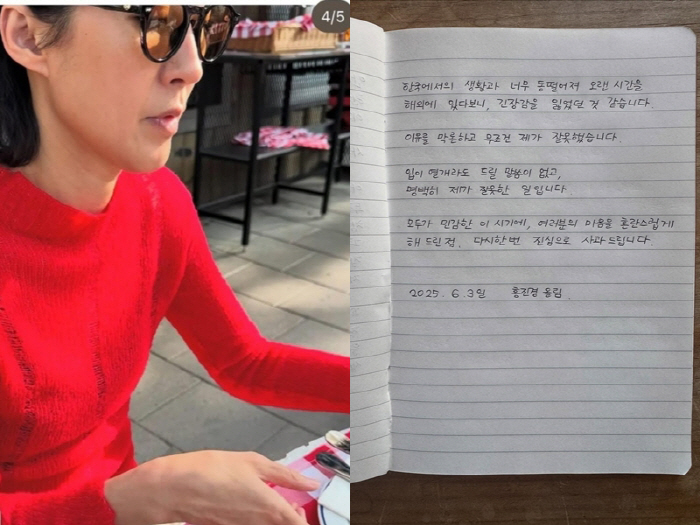 4/5
한국에서의 생활과 너무 동떨어져 오랜 시간을
해외에 있다보니, 긴장감을 잃었던 것 같습니다.
이유를 막론하고 무조건 제가 잘못했습니다.
입이 열개라도 드릴 말씀이 없고,
명백히 제가 잘못한 일입니다.
모두가 민감한 이 시기에, 여러분의 마음을 혼란스럽게
해 드린 점, 다시한번 진심으로 사과드립니다.
2025. 6. 3일 홍진경 올림.